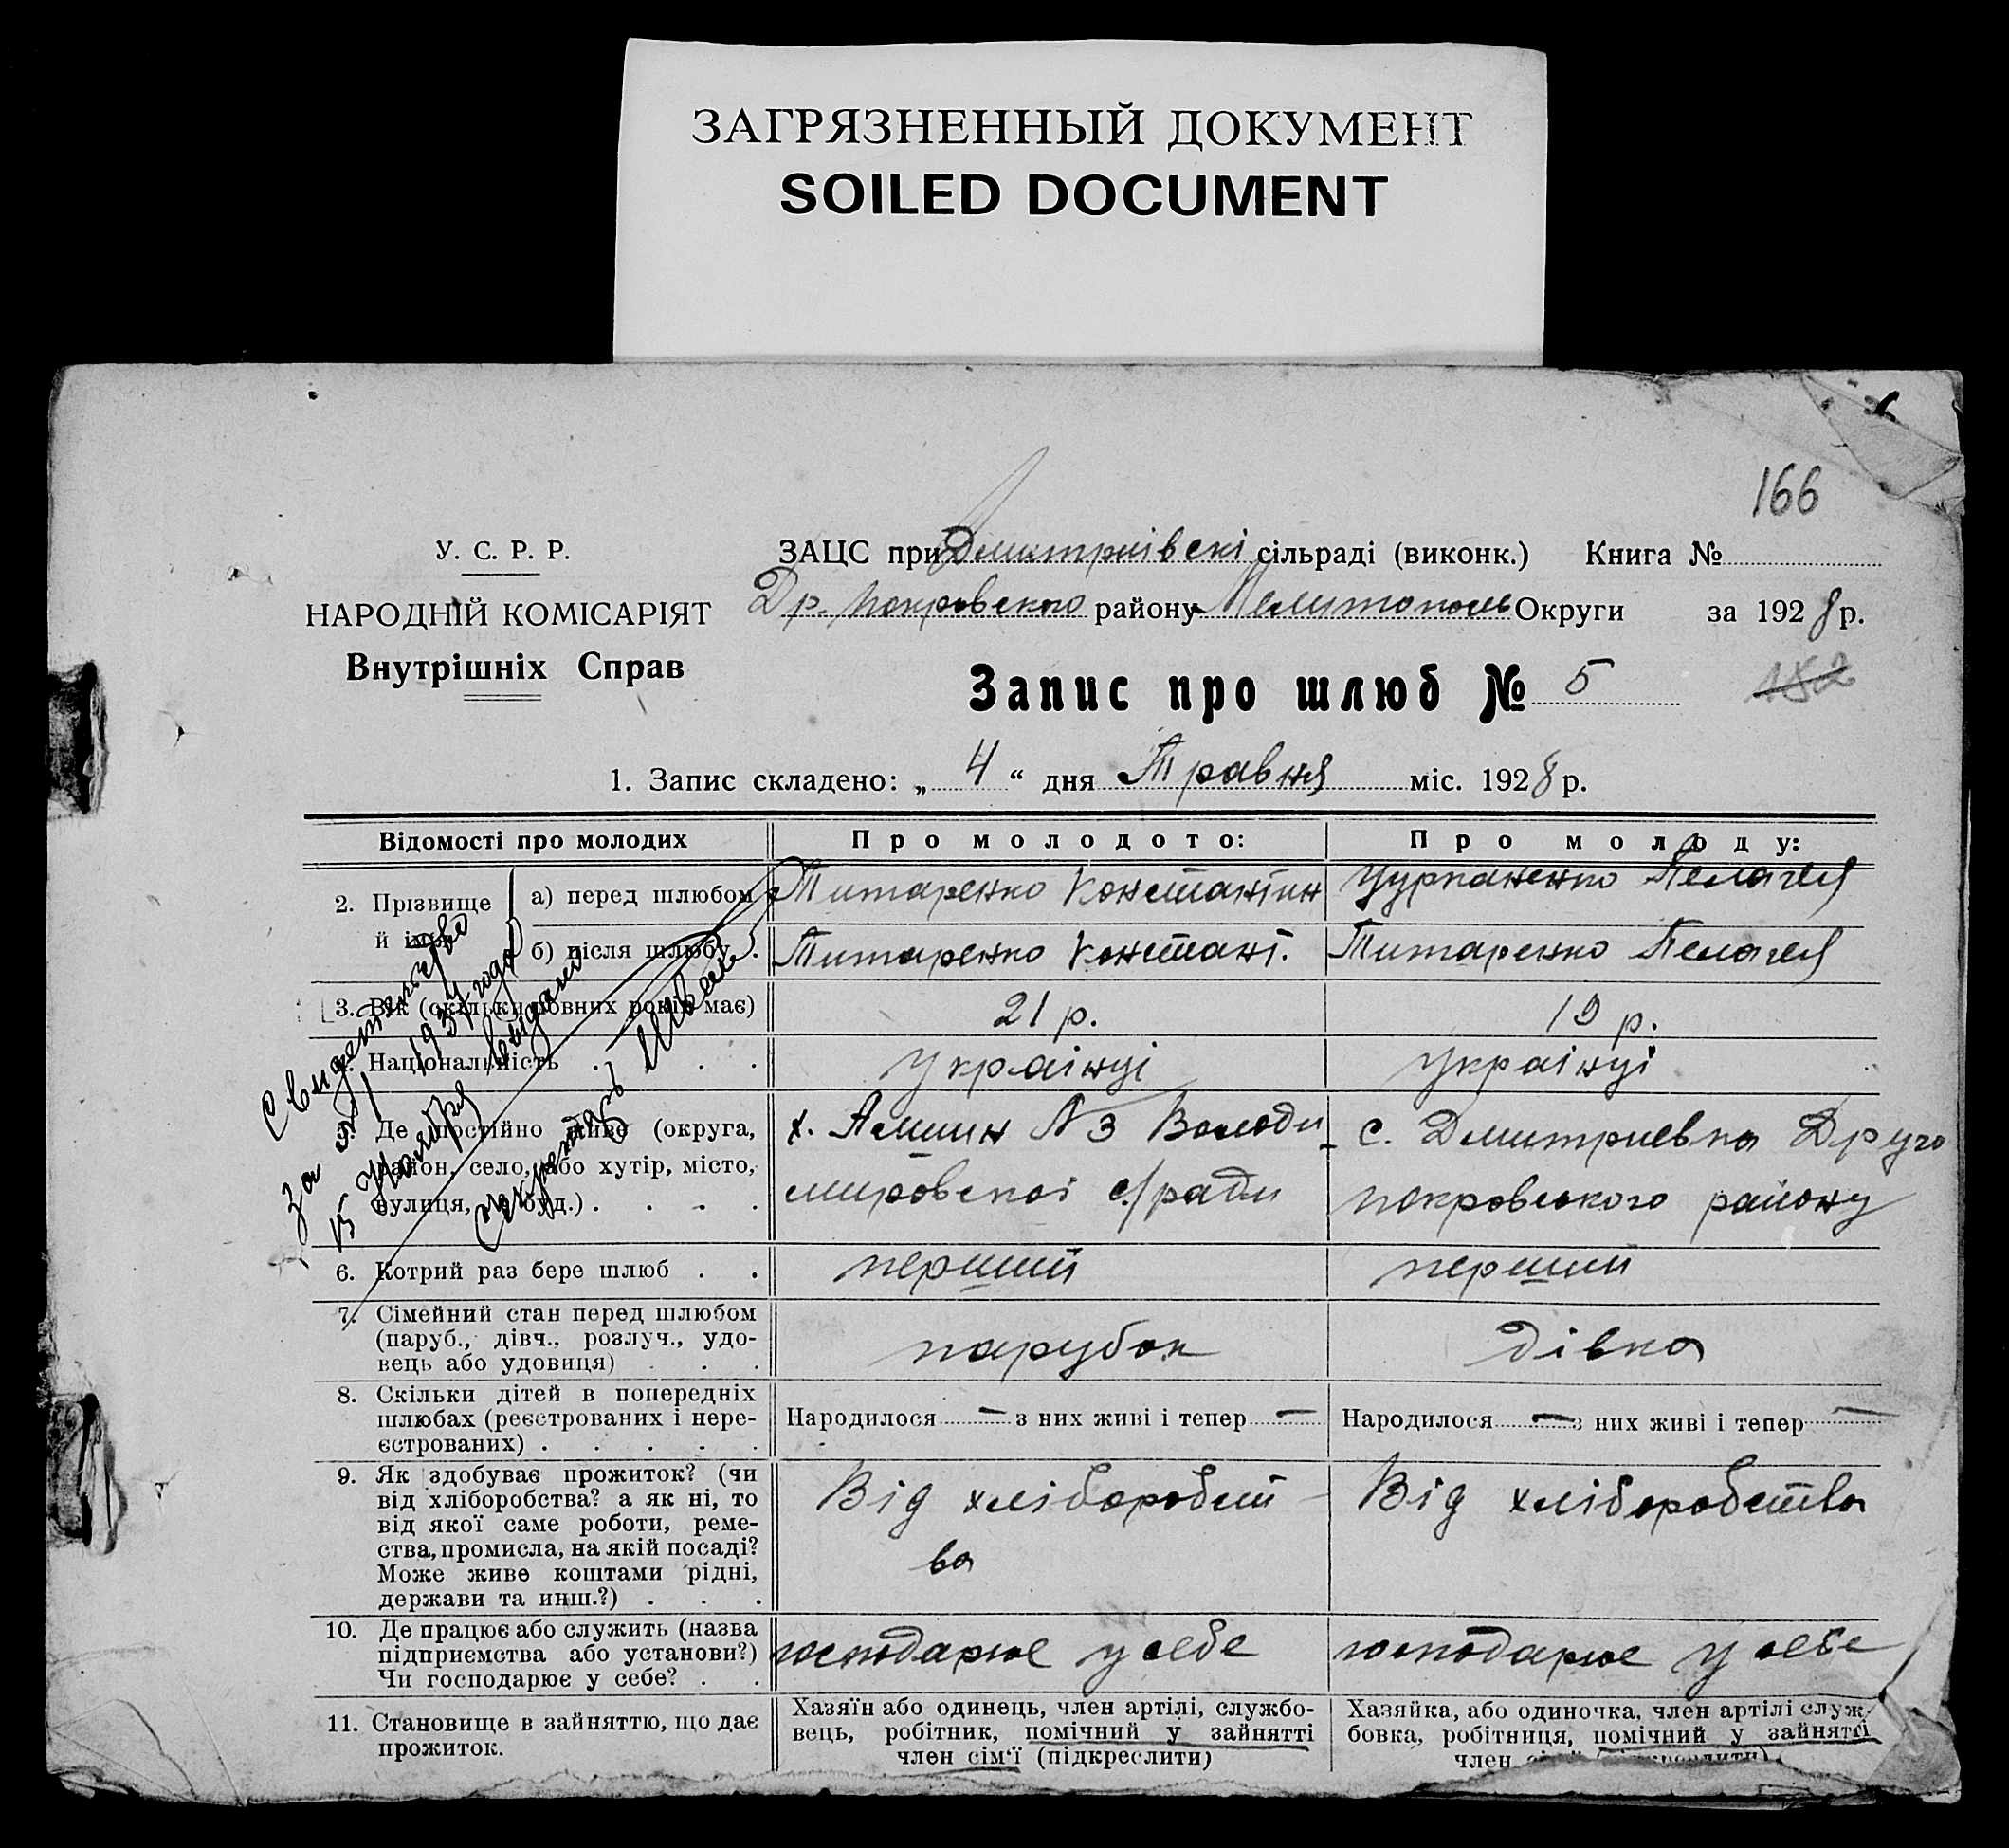 ЗАГРЯЗНЕННЫЙ ДОКУМЕНТ
SOILED DOCUMENT
166
У. С. Р. Р.
НАРОДНІЙ КОМІСАРІЯТ
Внутрішніх Справ
ЗАЦС при Дмитриівскі сільраді (виконк.) Книга №
Др. Покровского району Мелитополь Округи за 1928 р.
Запис про шлюб № 5
152
1. Запис складено: „ 4 “ дня Травня міс. 1928 р.
Відомості про молодих
Про молодого:
Про молоду:
2. Прізвище й ім'я
а) перед шлюбом
Титаренко Константин
Цурканенко Пелагея
б) після шлюбу
Титаренко Констант.
Титаренко Пелагея
3. Вік (скільки повних років має)
21 р.
19 р.
4. Національність . . .
Украінці
Украінці
5. Де постійно живе (округа,
район, село, або хутір, місто,
вулиця, № буд.) . . . .
х. №3 Володи
мировскоі с/ради
с. Дмитриевка Друго
покровського району
6. Котрий раз бере шлюб . .
перший
перший
7. Сімейний стан перед шлюбом
(паруб., дівч., розлуч., удо-
вець або удовиця) . . .
парубок
дівка
8. Скільки дітей в попередніх
шлюбах (реєстрованих і нере-
єстрованих) . . . . .
Народилося — з них живі і тепер —
Народилося — з них живі і тепер —
9. Як здобуває прожиток? (чи
від хліборобства? а як ні, то
від якої саме роботи, реме-
ства, промисла, на якій посаді?
Може живе коштами рідні,
держави та инш.?) . . .
Від хліборобст
ва
Від хліборобства
10. Де працює або служить (назва
підприємства або установи?)
Чи господарює у себе? . .
господарює у себе
господарює у себе
11. Становище в зайняттю, що дає
прожиток.
Хазяїн або одинець, член артілі, службо-
вець, робітник, помічний у зайнятті
член сім'ї (підкреслити)
Хазяйка, або одиночка, член артілі служ-
бовка, робітниця, помічний у зайнятті
член
Свидетельство
за №1 1937 года
15 Ноября выдано
Секретарь